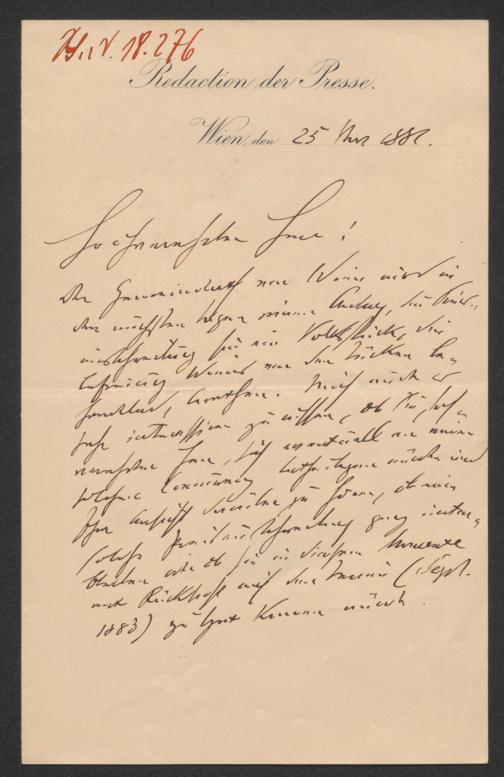 H.I.N. 18.276
Redaction der Presse.
Wien, den 25 1882.
Hochverehrter Herr!
Der Gemeinderath von Wien wird in
den nächsten Tagen meinen Antrag, die Preis-
ausschreibung für ein Volksstück, die
Befreiung Wiens von den Türken be-
handelnd, annehmen. Mich würde es
sehr interessiren zu wissen, ob Sie, hoch-
verehrter Herr, sich eventuell an einer
solchen Concurrenz betheiligen würden und
Ihre Ansicht darüber zu hören, ob eine
solche Preisausschreibung ganz
ob sie in diesem Momente
mit Rücksicht auf den Termin (Sept.
1883) zu spät kommen würde.